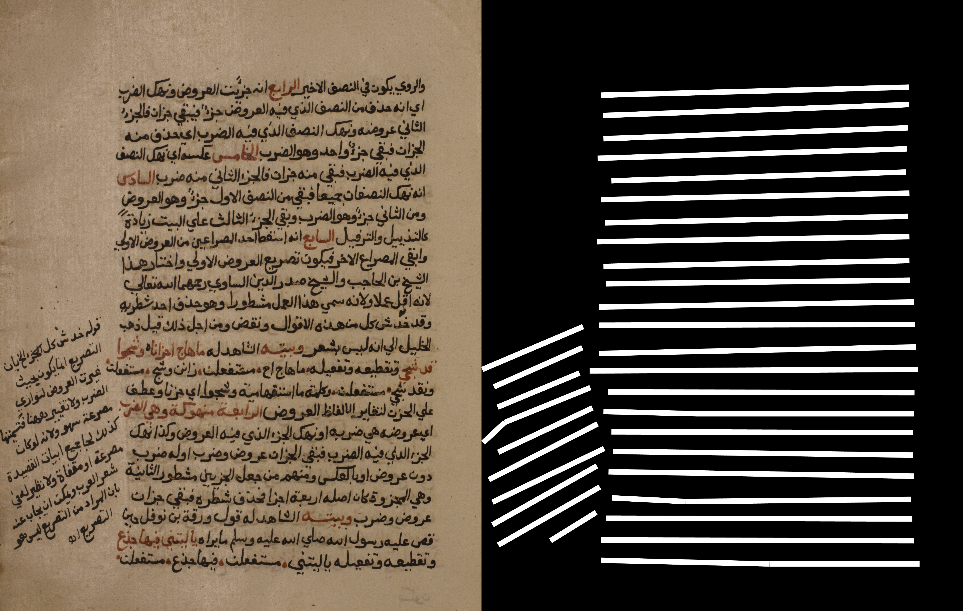 والروي يكون في النصف الاخير الرابع انه جزئت العروض ونهك الضرب
اي انه حذف من النصف الذي فيه العروض جزء فيبقي جزان فالجزء
الثاني عروضه ونهك النصف الذي فيه الضرب اي حذف منه
الجزان فبقي جزء واحد وهو الضرب الخامس عكسه اي نهك النصف
الذي فيه الضرب فبقي منه جزان فالجزء الثاني منه ضرب السادس
انه نهك النصفان جميعا فبقي من النصف الاول جزء وهو العروض
ومن الثاني جزء وهو الضرب وبقي الجزء الثالث علي البيت زيادة
كالتذييل والترفيل السابع انه اسقط احد المصراعين من العروض الاولي
وابقي المصراع الاخر فيكون تصريع العروض الاولي واختار هذا
الشيخ بن الحاجب والشيخ صدر الدين الساوي رحمهما الله تعالي
لانه اقل عملا ولانه سمي هذا العمل شطورا وهو حذف احد شطريه
وقد خدش كل من هذه الاقوال ونقض ومن اجل ذلك قيل ذهب
الخليل الي انه ليس بشعر وبيته الشاهد له ماهاج احزانا وشجوا
قد شجي وتقطيعه وتفعيله ماهاج اح مستفعلت زانن وشج مستفعلت
ونقد شجي مستفعلت وكلمة ما استفهامية وشجوا اي حزنا وعطف
علي الحزن لتغاير الالفاظ العروض الرابعة منهوكة وهي الضرب
اي عروضه هي ضربه او نهك الجزء الذي فيه العروض وكذا نهك
الجزء الذي فيه الضرب فبقي الجزان عروض وضرب او له ضرب
دون عروض او بالعكس ومنهم من جعل الجزئين مشطور الثانية
وهي المجزوة كان اصله اربعة اجزا فحذف شطره فبقي جزان
عروض وضرب وبيته الشاهد له قول ورقة بن نوفل حين
قص عليه رسول الله صلي الله عليه وسلم ما يراه ياليتني فيها جذع
وتقطيعه وتفعيله ياليتني مستفعلت فيها جذع مستفعلت
قوله خدش كل
التصريع انما يكون بحيث
غيرت العروض لتوازي
الضرب ولا تغيير
مصرعة سهو ولانه لو كان
كذلك لجا جميع ابيات القصيدة
مصرعة او مقفاة ولا نظير له في
شعر العرب ويمكن ان يجاب عنه
بان المراد من التصريع ليس هو
التصريع